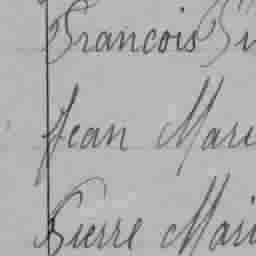 Francois
Jean Mari
Pierre Mari